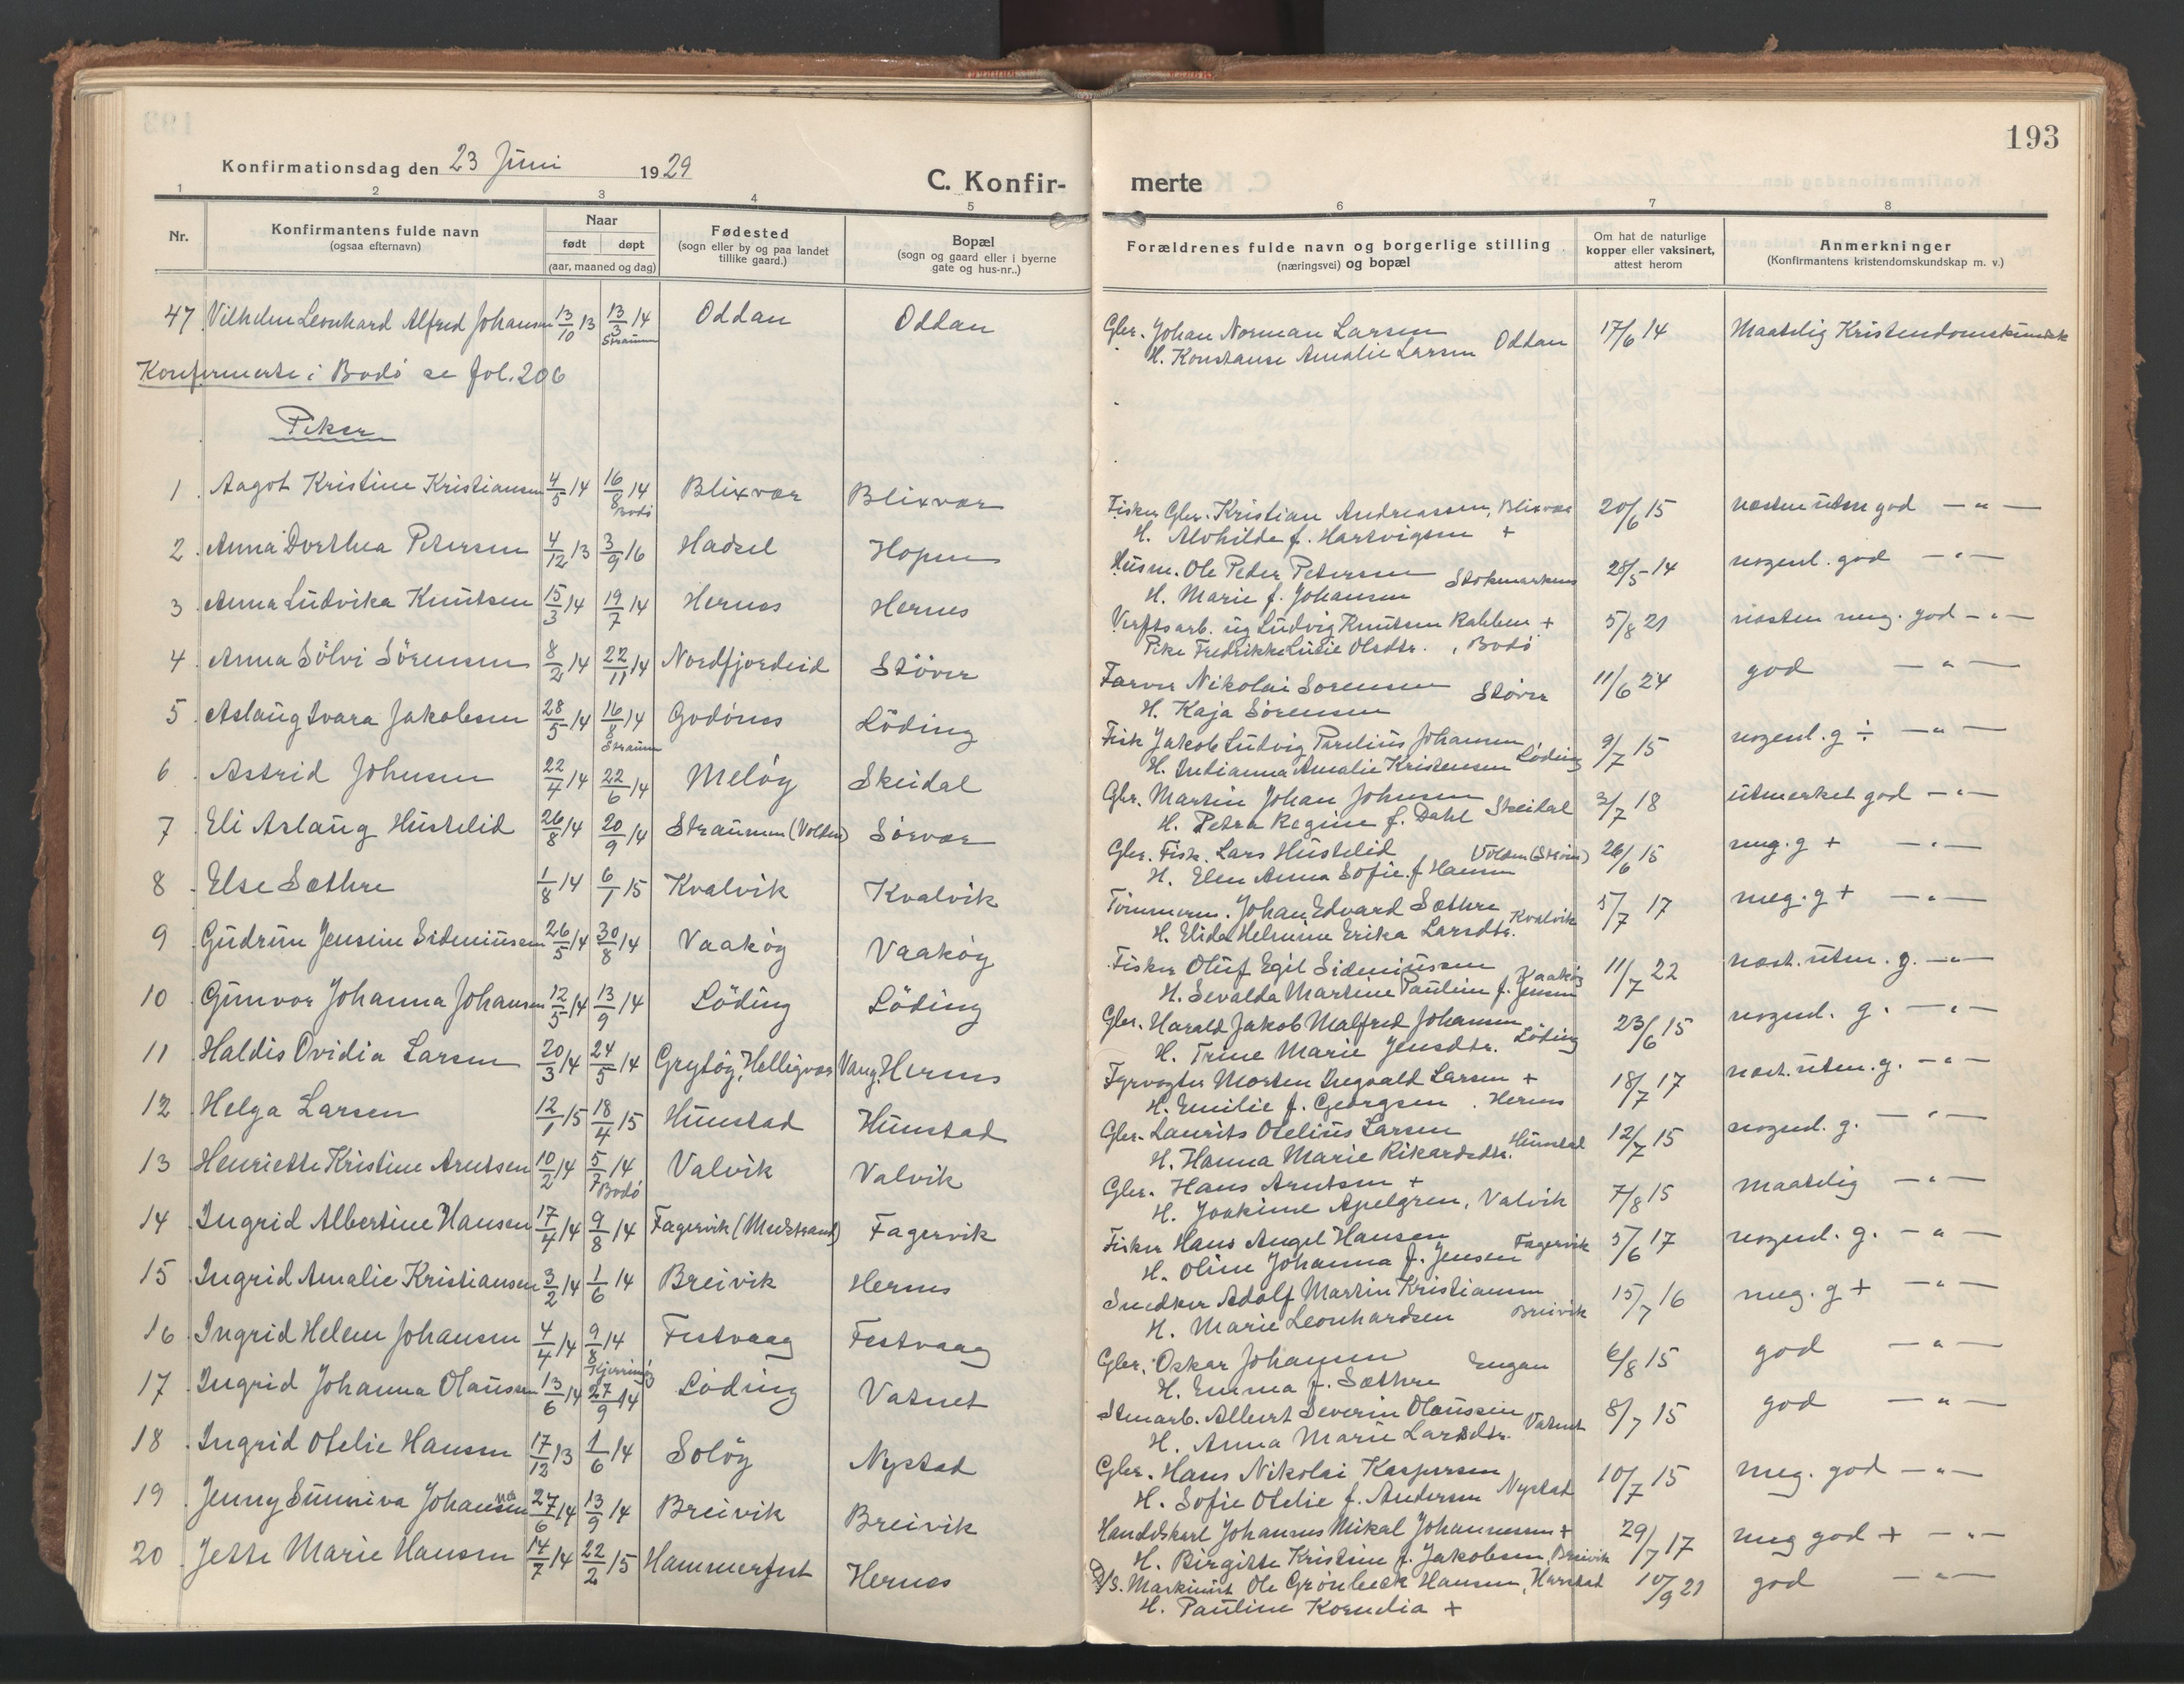 193
Konfirmationsdag den 23 Juni 1929
C. Konfir- merte
1 2 3 4 5 6 7 8
Nr.
Konfirmantens fulde navn
(ogsaa efternavn)
Naar
født døpt
(aar, maaned og dag)
Fødested
(sogn eller by og paa landet
tillike gaard.)
Bopæl
(sogn og gaard eller i byerne
gate og hus-nr..)
Forældrenes fulde navn og borgerlige stilling
(næringsvei) og bopæl
Om hat de naturlige
kopper eller vaksinert,
attest herom
Anmerkninger
(Konfirmantens kristendomskundskap m. v.)
47 Vilhelm Leonhard Alfred Johansen 13/10 13 13/3 14 Straumen Oddan Oddan Gbr. Johan Norman Larsen Oddan 17/6 14 Maatelig Kristendomskundsk
H. Konstanse Amalie Larsen
Konfirmerte i Bodö se fol. 206
Piker
1 Aagot Kristine Kristiansen 4/5 14 16/8 14 Bodö Blixvær Blixvær Fisker Gbr. Kristian Andreassen, Blixvær 20/6 15 næsten utm god — " —
H. Alvhilde f. Hartvigsen +
2 Anna Dorthea Petersen 4/12 13 3/9 16 Hadsel Hopen Husm. Ole Peder Petersen Stokmarknes 28/5 14 nogenl. god — " —
H. Marie f. Johansen
3 Anna Ludvika Knutsen 15/3 14 19/7 14 Hernes Hernes Verftsarb. ug Ludvig Knutsen Kabben + 5/8 21 næsten meg. god — " —
Pike Fredrikke Lucie Olsdtr., Bodö
4 Anna Sölvi Sörensen 8/2 14 22/11 14 Nordfjordeid Stöver Farver Nikolai Sorensen Stöver 11/6 24 god — " —
H. Kaja Sörensen
5 Aslaug Ivara Jakobsen 28/5 14 16/8 14 Straumen Godönes Löding Fisk Jakob Ludvig Parelius Johansen Löding 9/7 15 nogenl. g ÷ — " —
H. Indianna Amalie Kristensen
6 Astrid Johnsen 22/4 14 22/6 14 Melöy Skeidal Gbr. Martin Johan Johnsen Skeidal 3/7 18 utmerket god — " —
H. Petra Regine f. Dahl
7 Eli Aslaug Hustelid 26/8 14 20/9 14 Straumen (Volden) Sörvær Gbr. Fisk. Lars Hustelid Volden (Strøm) 26/6 15 meg. g + — " —
H. Elen Anna Sofie f Hansen
8 Else Sæthre 1/8 14 6/1 15 Kvalvik Kvalvik Tömmerm. Johan Edvard Sæthre Kvalvik 5/7 17 meg. g + — " —
H. Elida Helmine Erika Larsdtr.
9 Gudrun Jensine Sideniussen 26/5 14 30/8 14 Vaaköy Vaaköy Fisker Oluf Egil Sideniussen Vaaköy 11/7 22 næst. utm. g. — " —
H. Sevalda Martine Pauline f. Jensen
10 Gunvor Johanna Johansen 12/5 14 13/9 14 Löding Löding Gbr. Harald Jakob Malfred Johansen Löding 23/6 15 nogenl. g. — " —
H. Trine Marie Jensdtr.
11 Haldis Ovidia Larsen 20/3 14 24/5 14 Grytöy, Helligvær Vaag, Hernes Fyrvogter Morten Ingvald Larsen + 18/7 17 næst. utm. g. — " —
H. Emilie f. Georgsen. Hernes
12 Helga Larsen 12/1 15 18/4 15 Hunstad Hunstad Gbr. Laurits Otelius Larsen Hunstad 12/7 15 nogenl. g. — " —
H. Hanna Marie Rikardsdtr.
13 Henriette Kristine Arntsen 10/2 14 5/7 14 Bodö Valvik Valvik Gbr. Hans Arntsen + 7/8 15 maatelig — " —
H. Joakime Apelgren, Valvik
14 Ingrid Albertine Hansen 17/4 14 9/8 14 Fagervik (Misstrand) Fagervik Fisker Hans Angel Hansen Fagervik 5/6 17 nogenl. g. — " —
H. Oline Johanna f. Jensen
15 Ingrid Amalie Kristiansen 3/2 14 1/6 14 Breivik Hernes Snedker Adolf Martin Kristiansen Breivik 15/7 16 meg. g + — " —
H. Marie Leonhardsen
16 Ingrid Helene Johansen 4/4 14 9/8 14 Kjerringöy Festvaag Festvaag Gbr. Oskar Johansen Engan 6/8 15 god — " —
H. Emma f. Sæthre
17 Ingrid Johanna Olaussen 13/6 14 27/9 14 Löding Vatnet Stenarb. Albert Severin Olaussen Vatnet 8/7 15 god — " —
H. Anna Marie Larsdtr.
18 Ingrid Otelie Hansen 17/12 13 1/6 14 Solöy Nystad Gbr. Hans Nikolai Kaspersen Nystad 10/7 15 meg. god — " —
H. Sofie Otelie f. Andersen
19 Jenny Sunniva Johannesen 27/6 14 13/9 14 Breivik Breivik Handelskarl Johannes Mikal Johannessen + 29/7 17 meg god + — " —
H. Birgitte Kristine f. Jakobsen, Breivik
20 Jette Marie Hansen 14/7 14 22/2 15 Hammerfest Hernes D/S. Maskinist Ole Grönbeck Hansen, Harstad 10/9 21 god — " —
H. Pauline Kornelia +